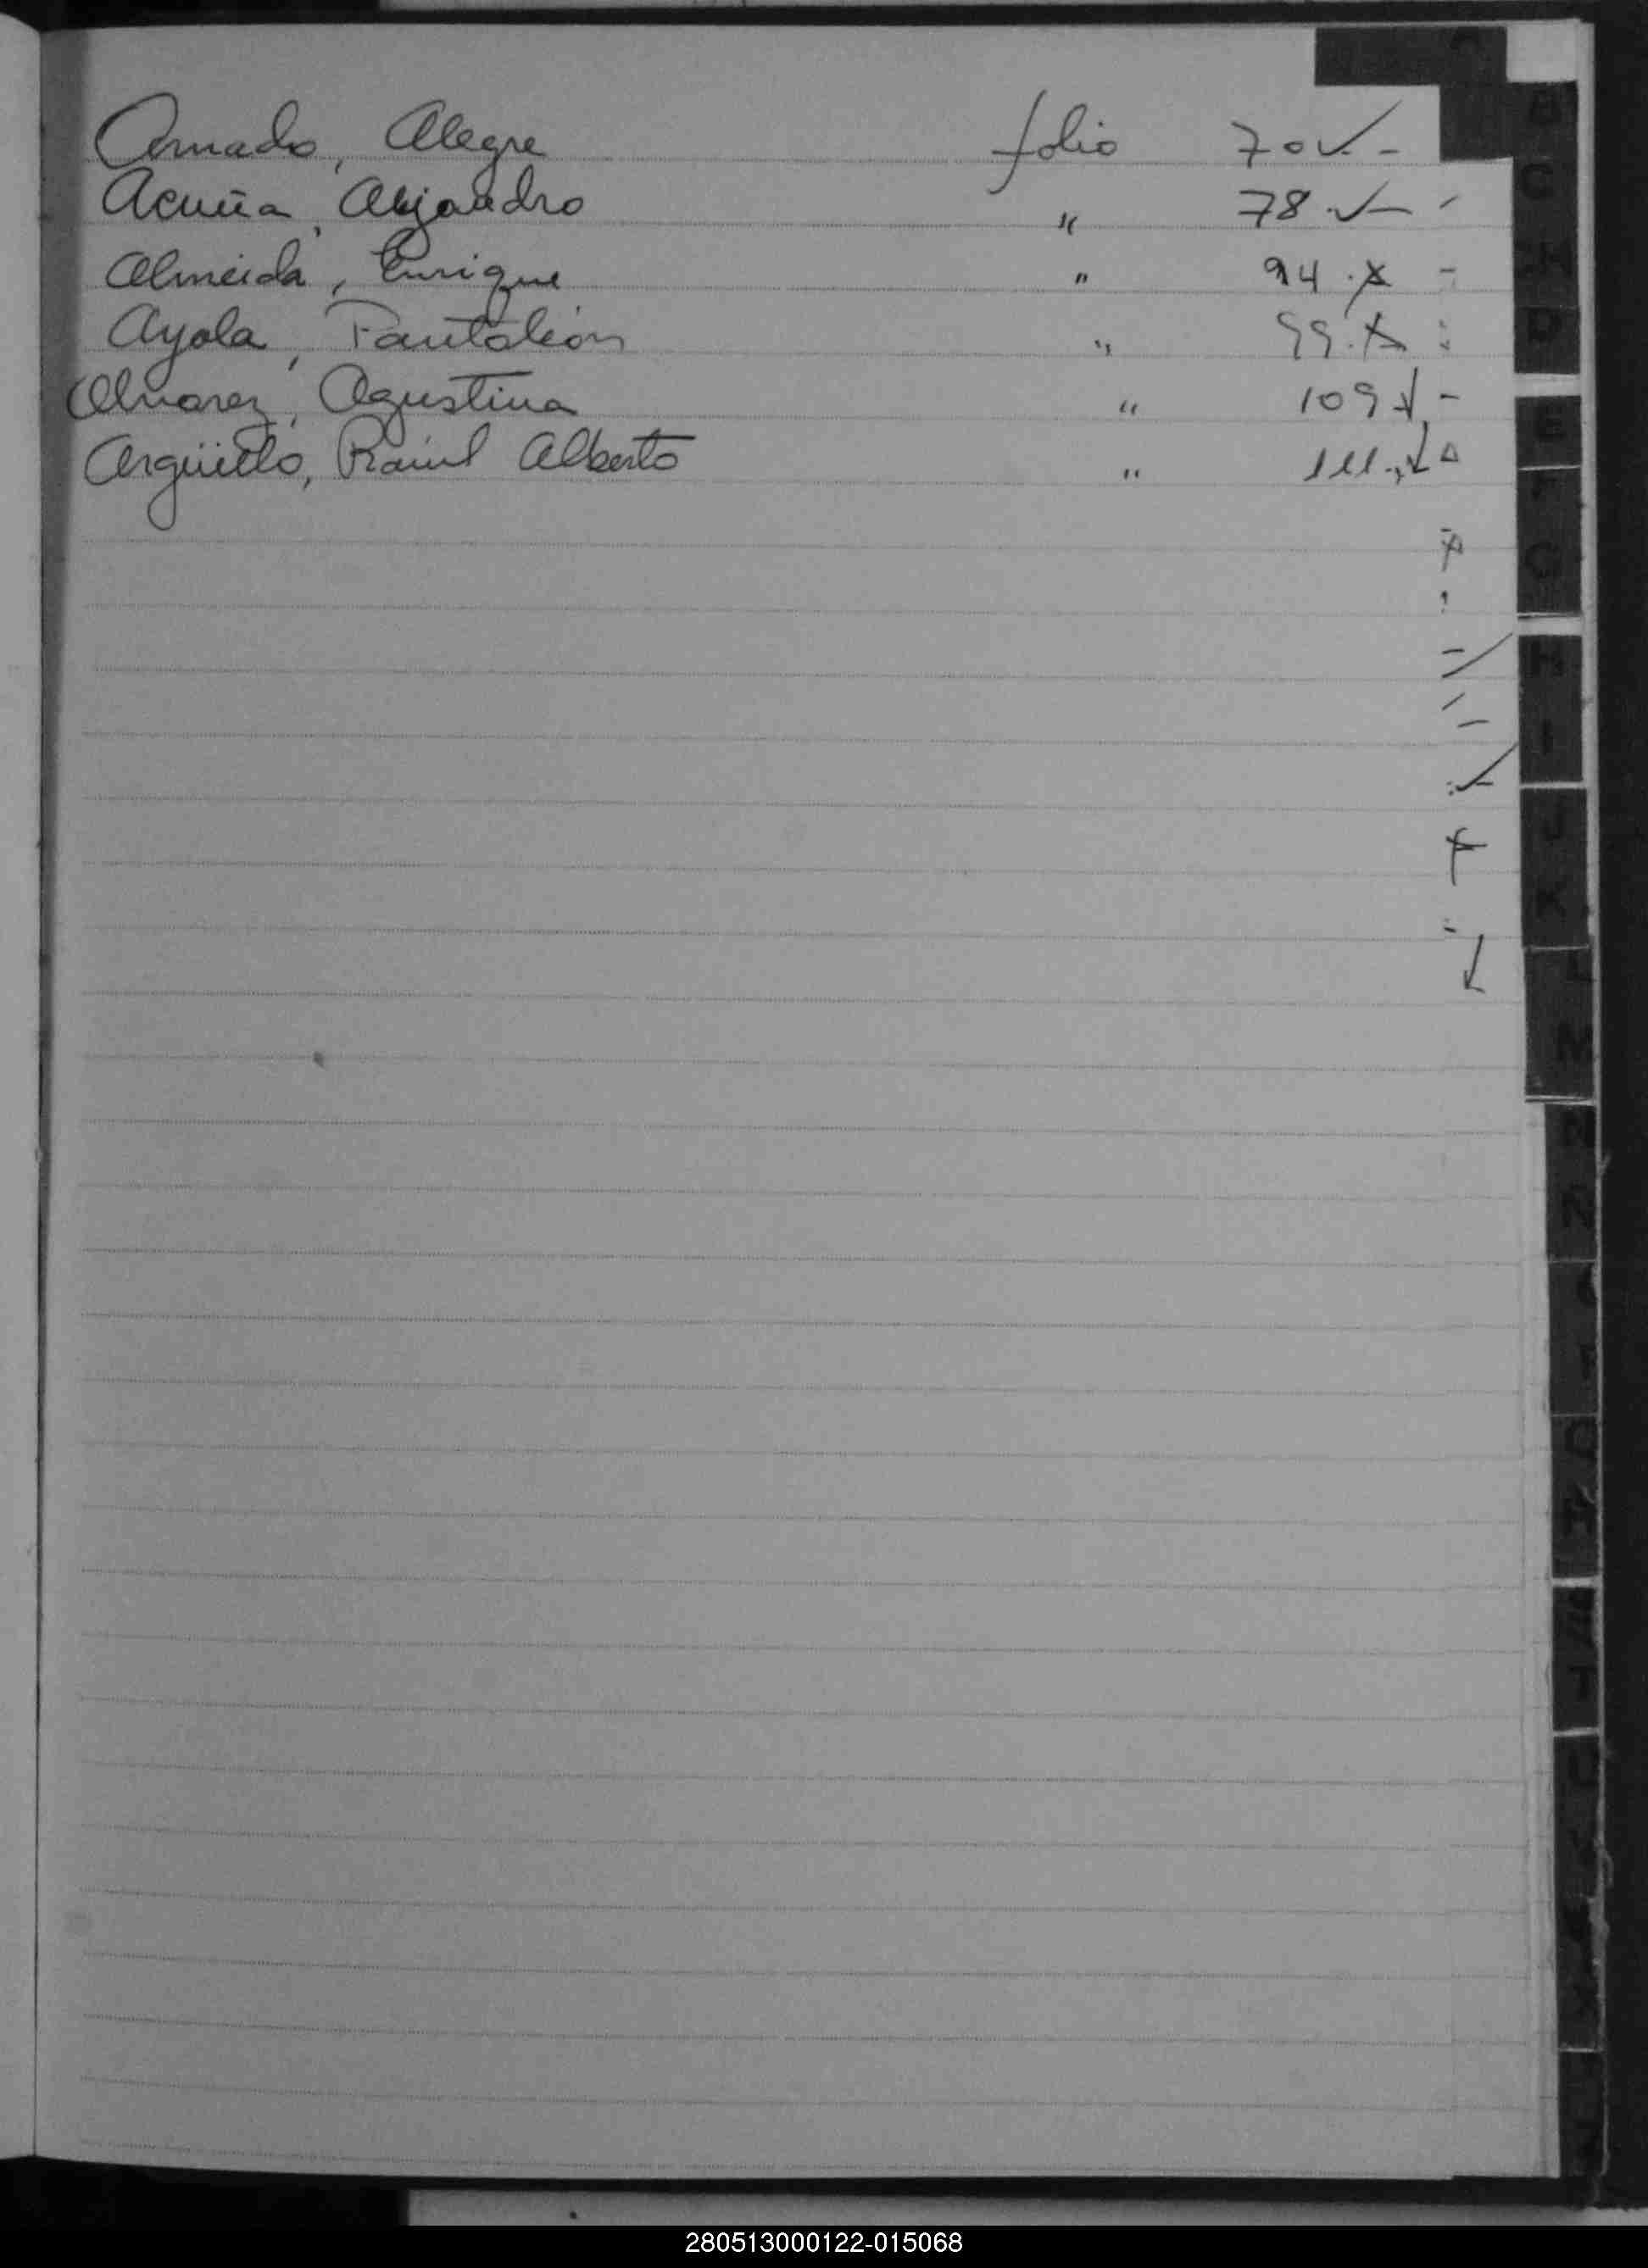 Amado, Alegre folio 70
Acuña, Alejandro " 78
Almeida, Enrique " 94
Ayala, Pantaleón " 99
Alvarez, Agustina " 109
Argüello, Raúl Alberto " 111
B
C
D
E
F
G
H
I
J
K
L
M
280513000122-015068